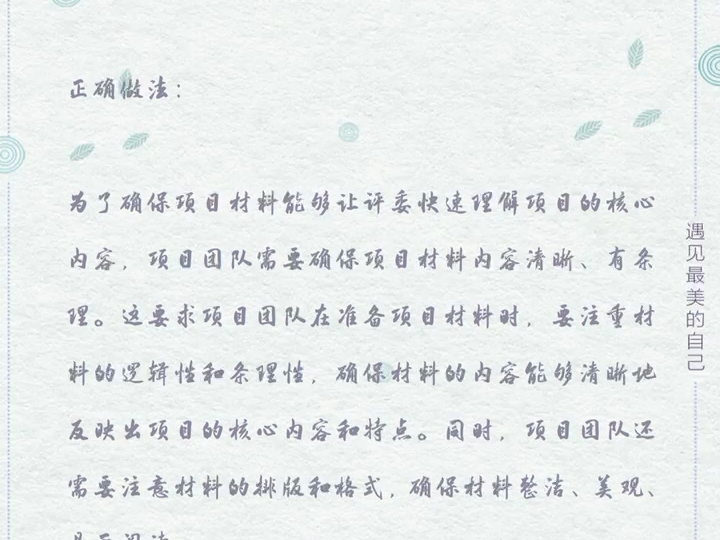 正确做法：
为了确保项目材料能够让评委快速理解项目的核心
内容，项目团队需要确保项目材料内容清晰、有条
理。这要求项目团队在准备项目材料时，要注重材
料的逻辑性和条理性，确保材料的内容能够清晰地
反映出项目的核心内容和特点。同时，项目团队还
需要注意材料的排版和格式，确保材料整洁、美观、
遇见最美的自己